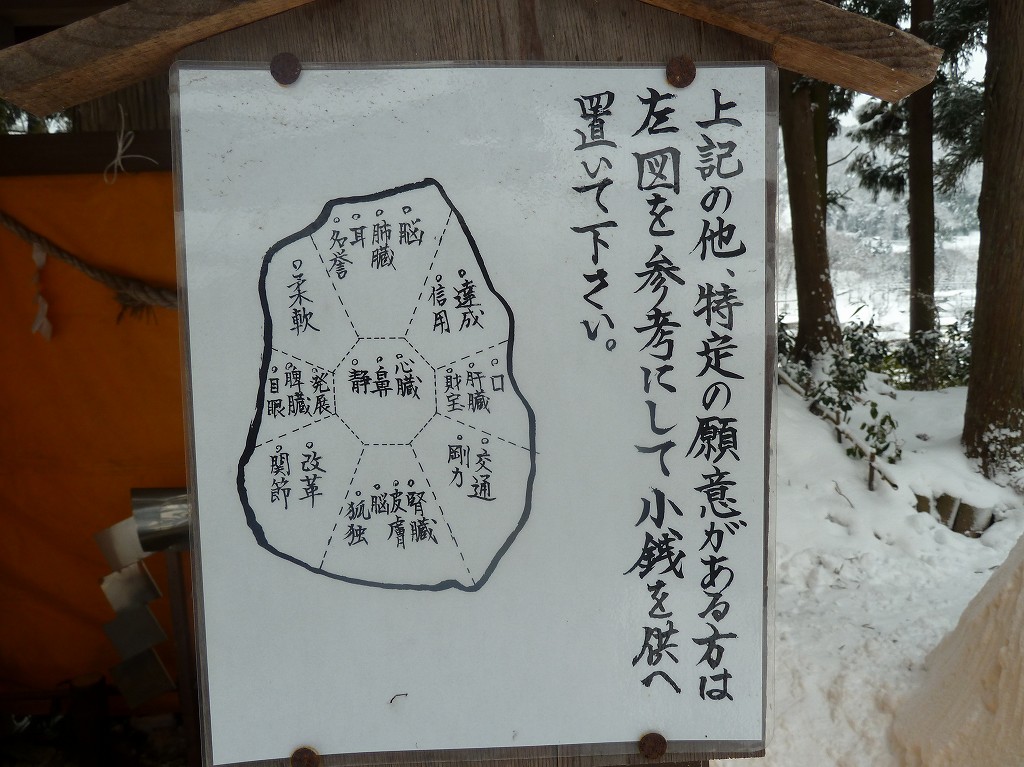 上記の他、特定の願意がある方は
左図を参考にして小銭を供へ
置いて下さい。
脳
肺臓
耳
名誉
達成
信用
柔軟
心臓
鼻
静
口
肝臓
財宝
発展
脾臓
目眼
交通
剛力
改革
関節
腎臓
皮膚
脳
孤独